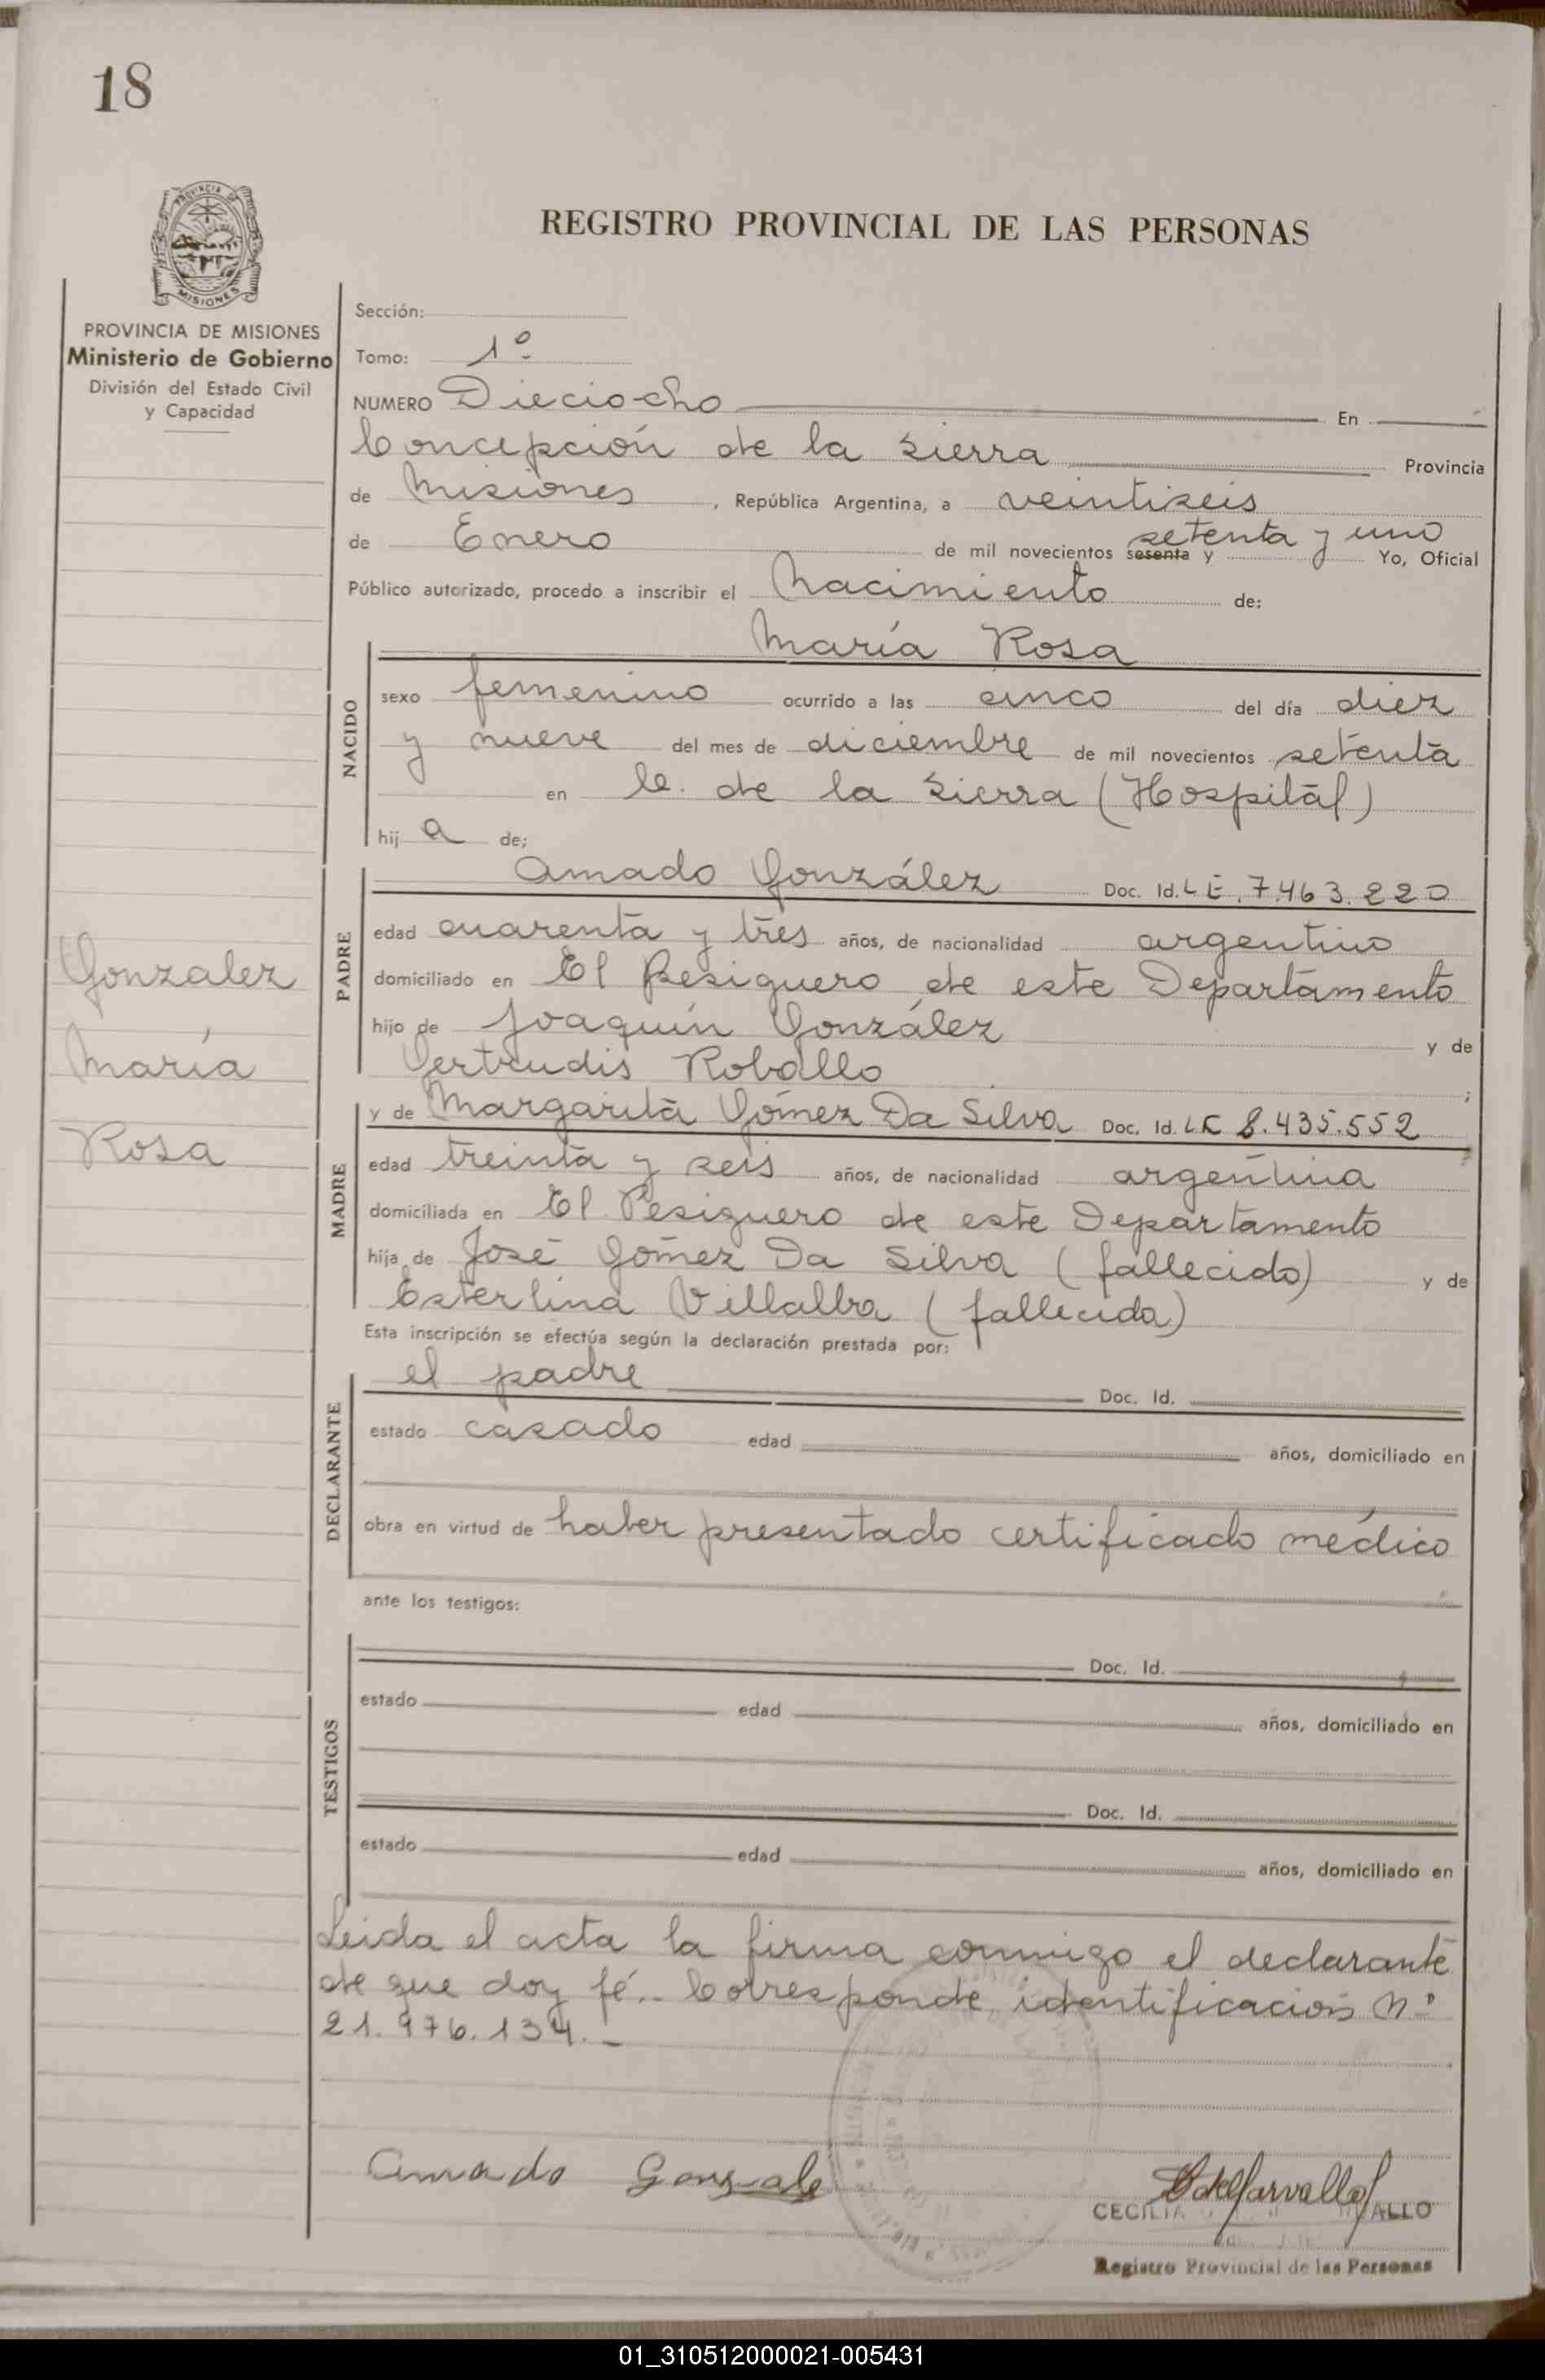 18
PROVINCIA
MISIONES
REGISTRO PROVINCIAL DE LAS PERSONAS
PROVINCIA DE MISIONES
Ministerio de Gobierno
División del Estado Civil
y Capacidad
Sección:
Tomo: 1º
NUMERO Dieciocho En
Concepción de la Sierra Provincia
de Misiones, República Argentina, a veintiseis
de Enero de mil novecientos sesenta y setenta y uno Yo, Oficial
Público autorizado, procedo a inscribir el Nacimiento de:
María Rosa
NACIDO
sexo femenino ocurrido a las cinco del día diez
y nueve del mes de diciembre de mil novecientos setenta
en C. de la Sierra (Hospital)
hij a de;
Amado González Doc. Id. L E. 7.463.220
PADRE
edad cuarenta y tres años, de nacionalidad argentino
domiciliado en El Pesiguero de este Departamento
hijo de Joaquín González y de
Gertrudis Roballo ;
Gonzalez
María
Rosa
y de Margarita Gómez Da Silva Doc. Id. LC 8.435.552
MADRE
edad treinta y seis años, de nacionalidad argentina
domiciliada en El Pesiguero de este Departamento
hija de José Gómez Da Silva (fallecido) y de
Esterlina Villalba (fallecida)
Esta inscripción se efectúa según la declaración prestada por:
el padre Doc. Id.
DECLARANTE
estado casado edad años, domiciliado en
obra en virtud de haber presentado certificado médico
ante los testigos:
Doc. Id.
TESTIGOS
estado edad años, domiciliado en
Doc. Id.
estado edad años, domiciliado en
Leida el acta la firma conmigo el declarante
de que doy fé.. Corresponde identificación Nº
21.976.134._
Amado Gonzale
CECILIA ALLO
Registro Provincial de las Personas
01_310512000021-005431